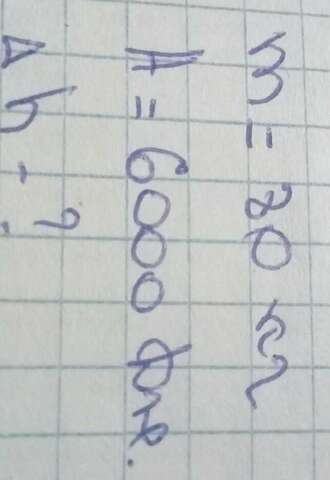 m = 20 кг
A = 6000 Дж.
Δh - ?